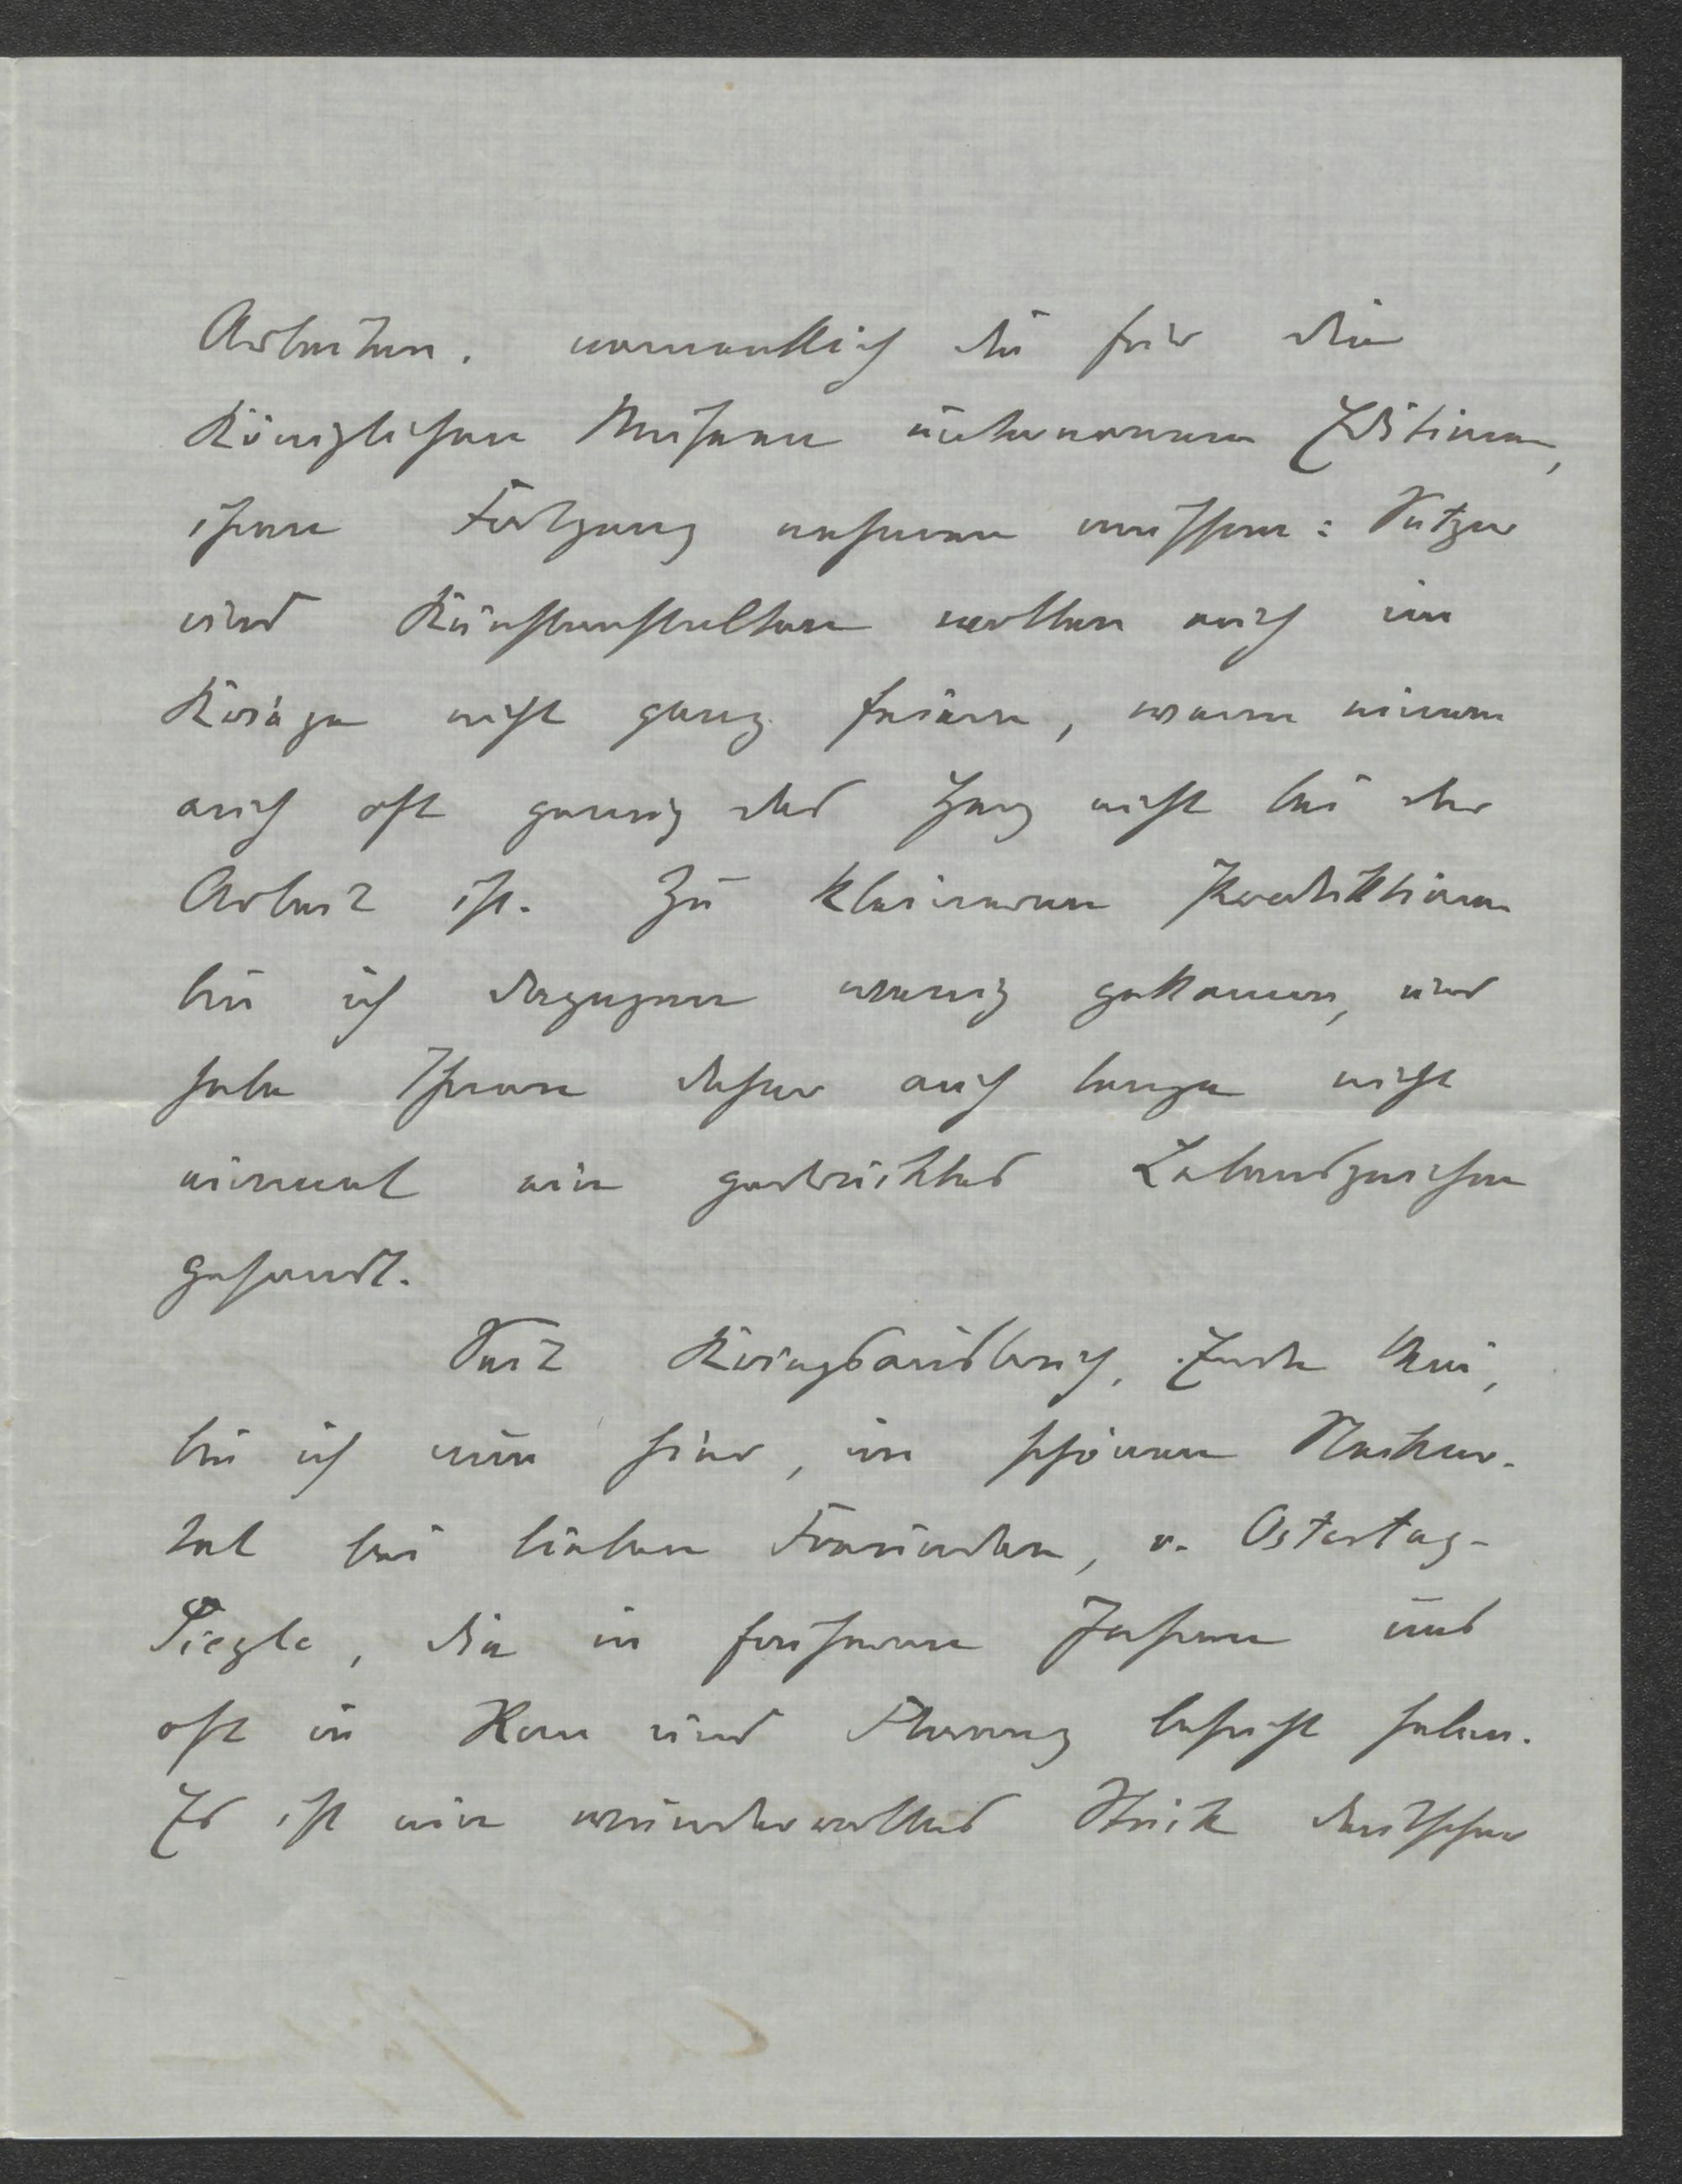 Arbeiten, namentlich die für die
Königlichen Museen übernommenen Editionen,
ihren Fortgang nehmen mussten: Setzer
und Kunstanstalten wollten auch im
Kriege nicht ganz feiern, wenn einem
auch oft genug das Herz nicht bei der
Arbeit ist. Zu kleineren Produktionen
bin ich dagegen wenig gekommen, und
habe Ihnen daher auch lange nicht
einmal ein gedrucktes Lebenszeichen
gesandt.
Seit Kriegsausbruch, Ende Mai,
bin ich nun hier, im schönen Neckar-
tal bei lieben Freunden, v. Ostertag-
Siegle, die in früheren Jahren uns
oft in Rom und Florenz besucht haben.
Es ist ein wundervolles Stück deutscher